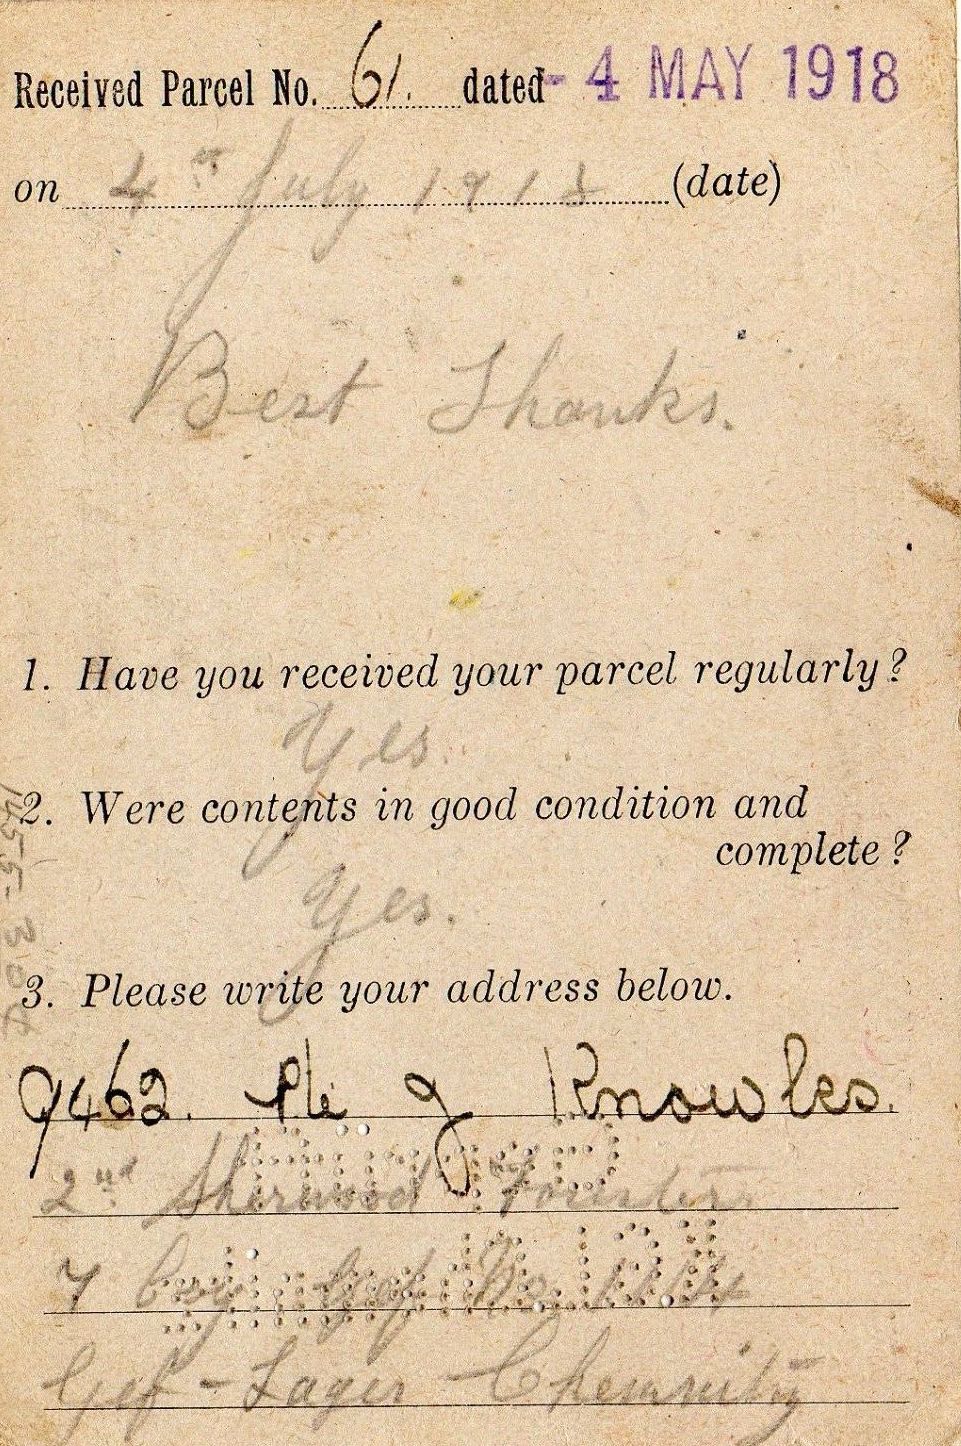 Received Parcel No. 61. dated - 4 MAY 1918
on 4th July 1918 (date)
Best Thanks.
1. Have you received your parcel regularly?
Yes.
2. Were contents in good condition and
complete?
Yes.
3. Please write your address below.
9462. Pte J Knowles.
2nd Sherwood Foresters
7 Coy. Gef No.
Gef-Lager Chemnitz